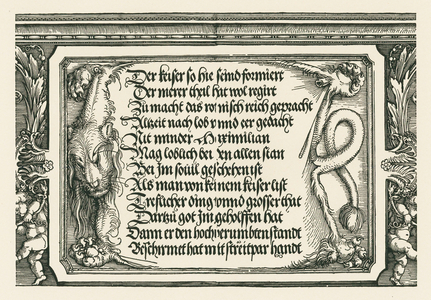 Der keiser so hie seind formiert
Der merer theil hat wol regirt
Zu macht das römisch reich gepracht
Alltzeit nach lob vnnd eer gedacht
Nit minder Maximilian
Mag loblich bei yn allen stan
Bei jm souil geschehen ist
Als man von keinem keiser list
Treflicher ding vnnd grosser that
Darzu got jm geholffen hat
Dann er den hochuerumbten standt
Beschirmet hat mit streitpar handt